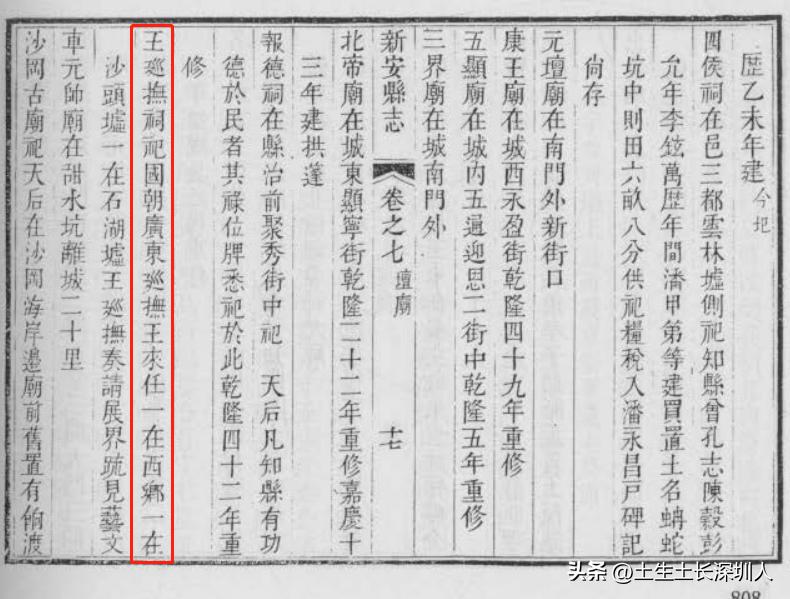 歴乙未年建今圯
四侯祠在邑三都雲林墟側祀知縣曾孔志陳穀彭
允年李鉉萬歴年間潘甲第等建買置土名蜻蛇
坑中則田六畝八分供祀糧稅入潘永昌戸碑記
尙存
元壇廟在南門外新街口
康王廟在城西永盈街乾隆四十九年重修
五顯廟在城内五通迎恩二街中乾隆五年重修
三界廟在城南門外
新安縣志 卷之七 壇廟 十七
北帝廟在城東顯寧街乾隆二十二年重修嘉慶十
三年建拱蓬
報德祠在縣治前聚秀街中祀 天后凡知縣有功
德於民者其祿位牌悉祀於此乾隆四十二年重
修
王廵撫祠祀國朝廣東廵撫王來任一在西鄉一在
沙頭墟一在石湖墟王廵撫奏請展界疏見藝文
車元師廟在甜水坑離城二十里
沙岡古廟祀天后在沙岡海岸邉廟前舊置有餉渡
头条 @土生土长深圳人
808